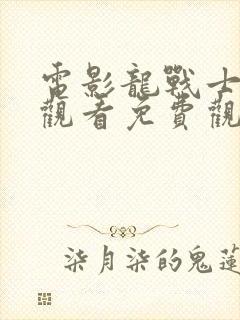 電影龍戰士
觀看免費觀
柒月柒的鬼蓮